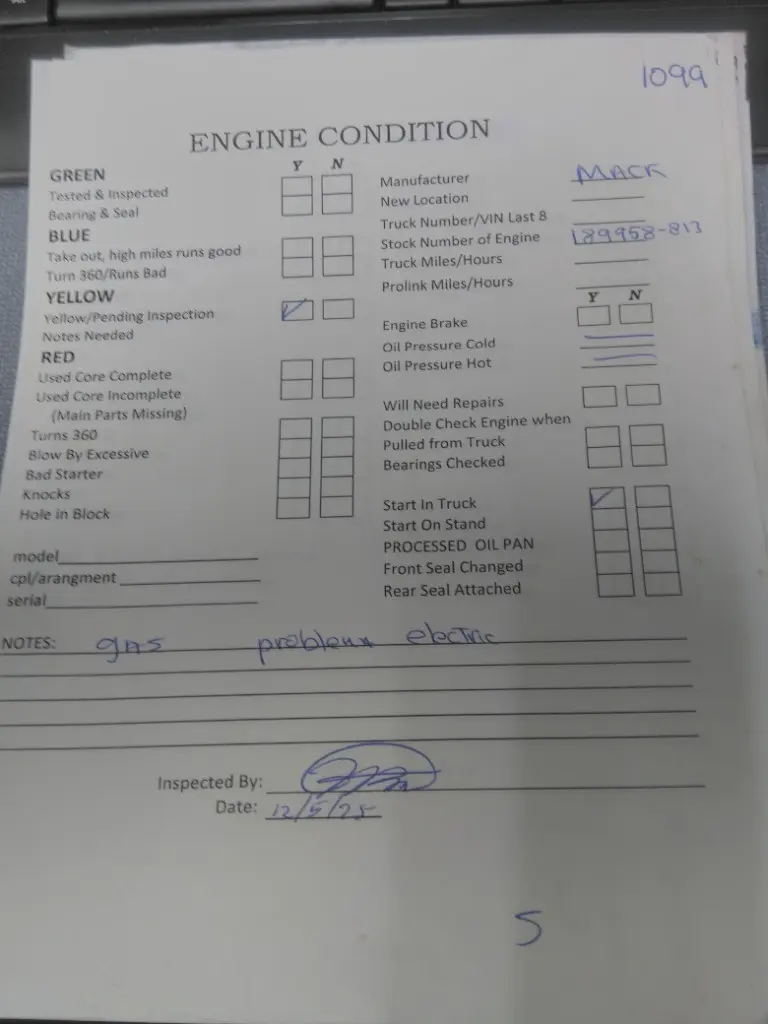 1099
ENGINE CONDITION
Y N
GREEN
Tested & Inspected
Bearing & Seal
BLUE
Take out, high miles runs good
Turn 360/Runs Bad
YELLOW
Yellow/Pending Inspection
Notes Needed
RED
Used Core Complete
Used Core Incomplete
(Main Parts Missing)
Turns 360
Blow By Excessive
Bad Starter
Knocks
Hole in Block
model
cpl/arangment
serial
Manufacturer MACK
New Location
Truck Number/VIN Last 8
Stock Number of Engine 189958-813
Truck Miles/Hours
Prolink Miles/Hours
Y N
Engine Brake
Oil Pressure Cold
Oil Pressure Hot
Will Need Repairs
Double Check Engine when
Pulled from Truck
Bearings Checked
Start In Truck
Start On Stand
PROCESSED OIL PAN
Front Seal Changed
Rear Seal Attached
NOTES: gas problem electric
Inspected By:
Date: 12/5/25
5